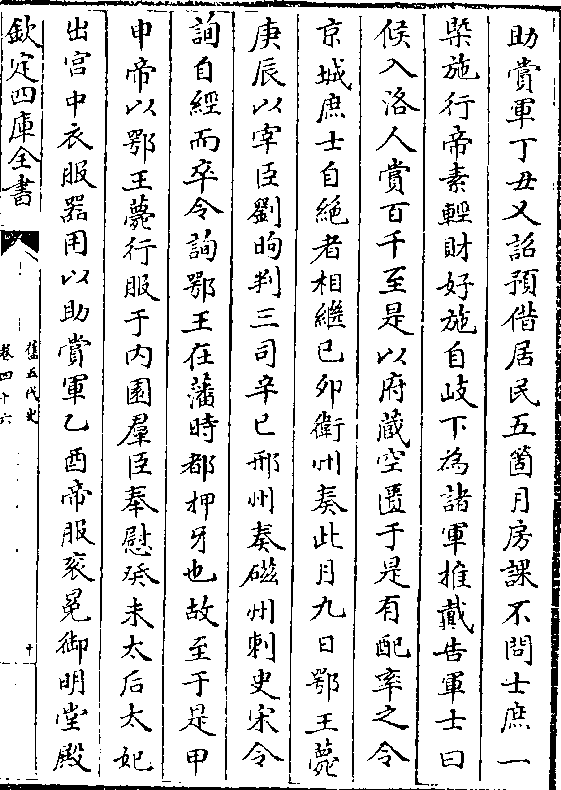 助賞軍丁丑又詔預借居民五箇月房課不問士庶一
槩施行帝素輕財好施自岐下為諸軍推戴告軍士曰
候入洛人賞百千至是以府藏空匱于是有配率之令
京城庶士自絶者相繼己卯衛州奏此月九日鄂王薨
庚辰以宰臣劉昫判三司辛巳邢州奏磁州刺史宋令
詢自經而卒令詢鄂王在藩時都押牙也故至于是甲
申帝以鄂王薨行服于内園羣臣奉慰癸未太后太妃
出宫中衣服器用以助賞軍乙酉帝服衮冕御明堂殿
欽定四庫全書
舊五代史
卷四十六
十